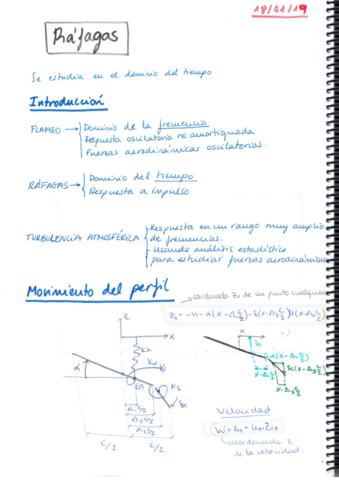 18/01/19
Ráfagas
Se estudia en el dominio del tiempo
Introducción
FLAMEO → Dominio de la frecuencia
Respuesta oscilatoria no amortiguada
Fuerzas aerodinámicas oscilatorias.
RÁFAGAS → Dominio del tiempo
Respuesta a impulso
TURBULENCIA ATMOSFÉRICA
Respuesta en un rango muy amplio
de frecuencias.
- Usando análisis estadístico
para estudiar fuerzas aerodinámicas
Movimiento del perfil
coordenada Z de un punto cualquiera
z
x
Kh
α
x
h
c/2
c/2
Velocidad
coordenada z
de la velocidad.